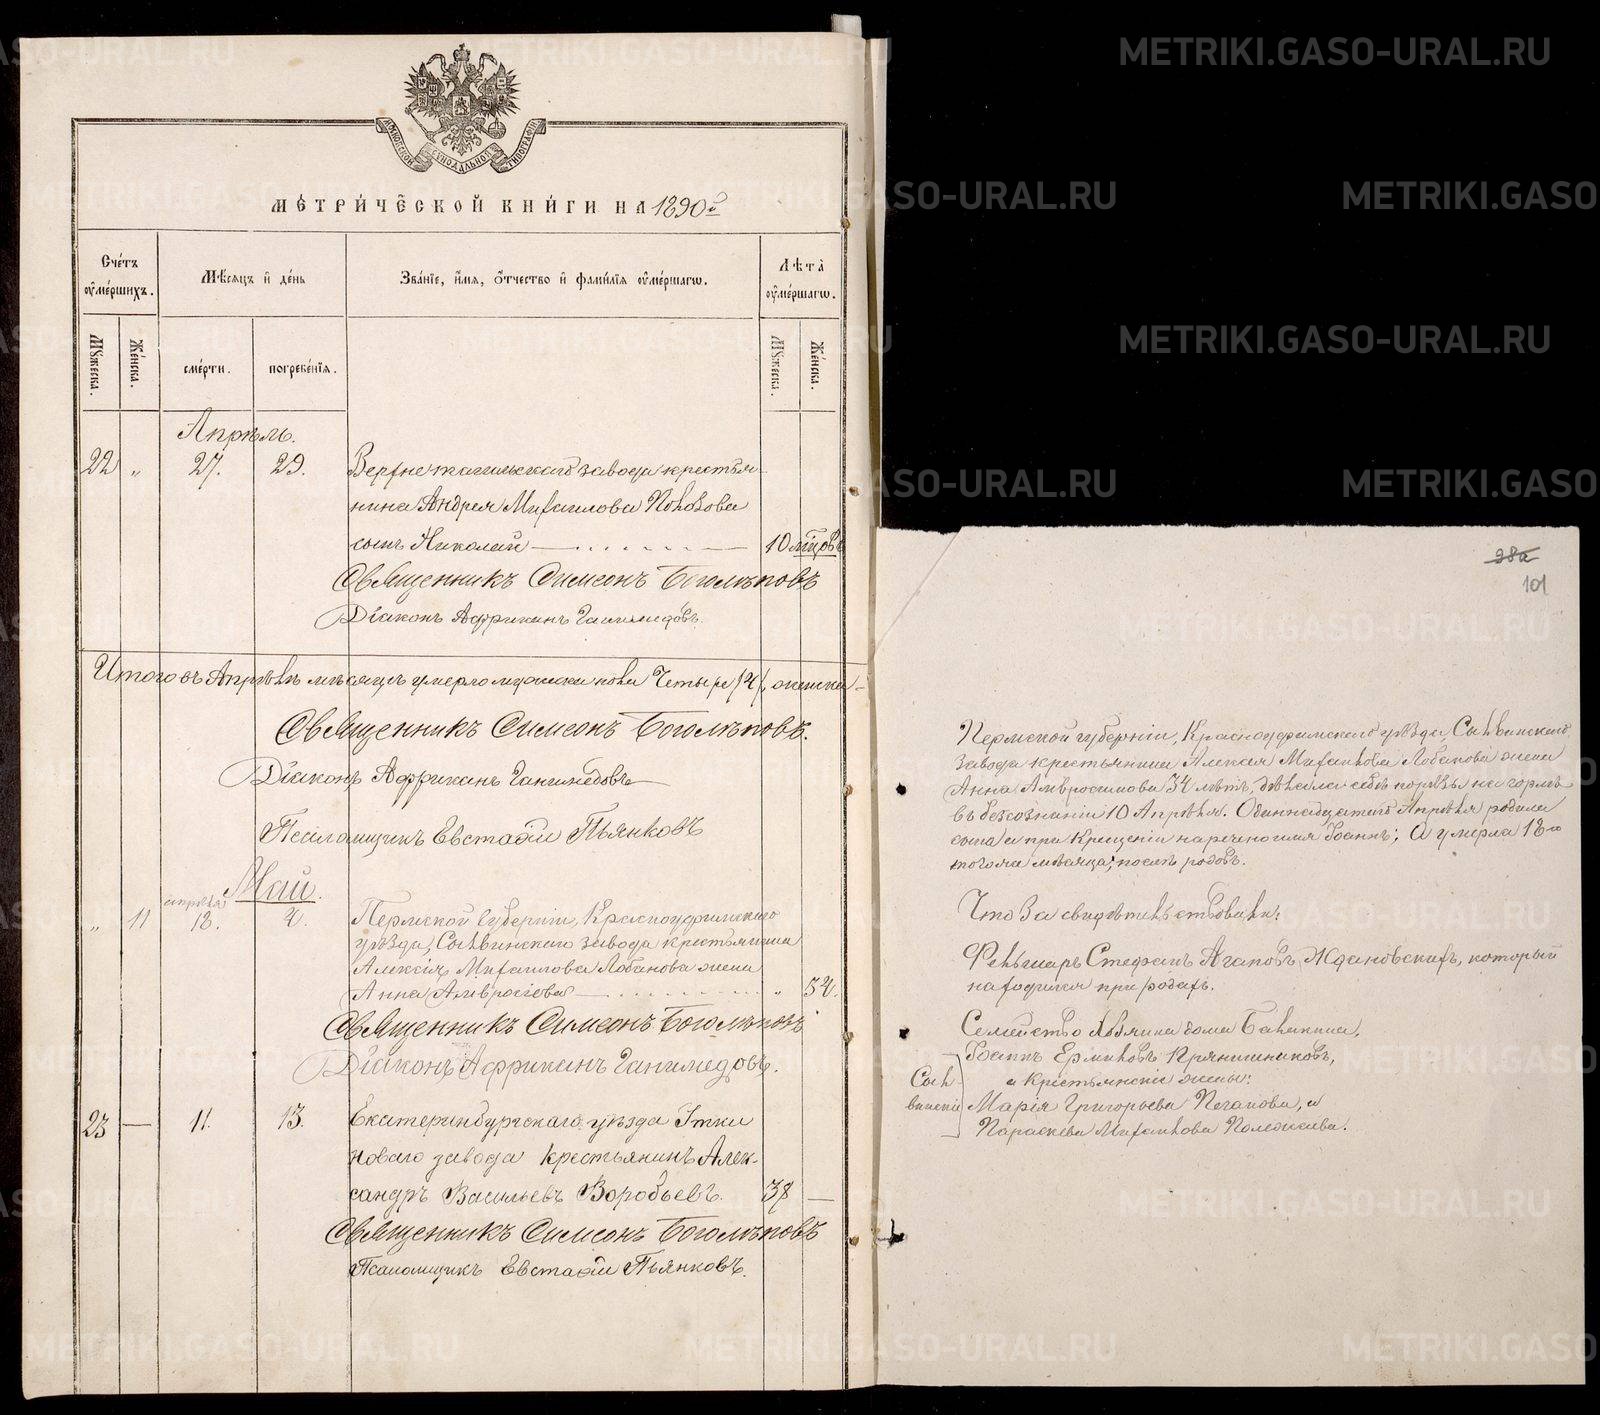 МОСКОВСКОЙ СѴНОДАЛЬНОЙ ТИПОГРАФІИ
МЕТРИЧЕСКОЙ КНИГИ НА 1890 й
Счетъ умершихъ.
Мѣсяцъ и день
Званіе, имя, отчество и фамилія умершагω.
Лѣта умершагω.
Мужеска.
Женска.
смерти.
погребенія.
Мужеска.
Женска.
Апрѣль.
22 „ 27. 29. Верхнетагильскаго завода крестья
нина Андрея Михаилова
сынъ Николай 10 м̃цовъ
Священникъ Симеонъ Боголѣповъ
Діаконъ Африканъ Ганимедовъ.
Итого въ Апрѣлѣ мѣсяцѣ умерло мужска пола Четыре /4/, женска –
Священникъ Симеонъ Боголѣповъ.
Діаконъ Африканъ Ганимедовъ
Псаломщикъ Евстафій Пьянковъ
Май.
апрѣля
„ 11 18. 2. Пермской Губерніи, Красноуфимскаго
уѣзда, Сылвинскаго завода крестьянина
Алексія Михаилова Лобанова жена
Анна Амвросіева „ 34.
Священникъ Симеонъ Боголѣповъ
Діаконъ Африканъ Ганимедовъ.
23 — 11. 13. Екатеринбургскаго уѣзда Утки
новаго завода крестьянинъ Алек-
сандръ Васильевъ Воробьевъ. 38 —
Священникъ Симеонъ Боголѣповъ
Псаломщикъ Евстафій Пьянковъ.
28а
101
Пермской губерніи, Красноуфимскаго уѣзда, Сылвинскаго
завода крестьянина Алексія Михаилова Лобанова жена
Анна Амвросимова 34 лѣтъ, сдѣлала себѣ порѣзы на горлѣ
въ безсознаніи 10 Апрѣля. Одиннадцатаго Апрѣля родила
сына и при Крещеніи нареченъ имя Іоаннъ; А умерла 18го
того же мѣсяца, послѣ родовъ.
Что Засвидѣтельствовали:
Фельдшеръ Стефанъ Агаповъ Ждановскихъ, который
находился при родахъ.
Семейство
Іоаннъ Ермиловъ Прянишниковъ,
и крестьянскіе жены:
Сыл-
винскіе
Марія Григорьева и
Параскева Михаилова Полежаева.
METRIKI.GASO-URAL.RU